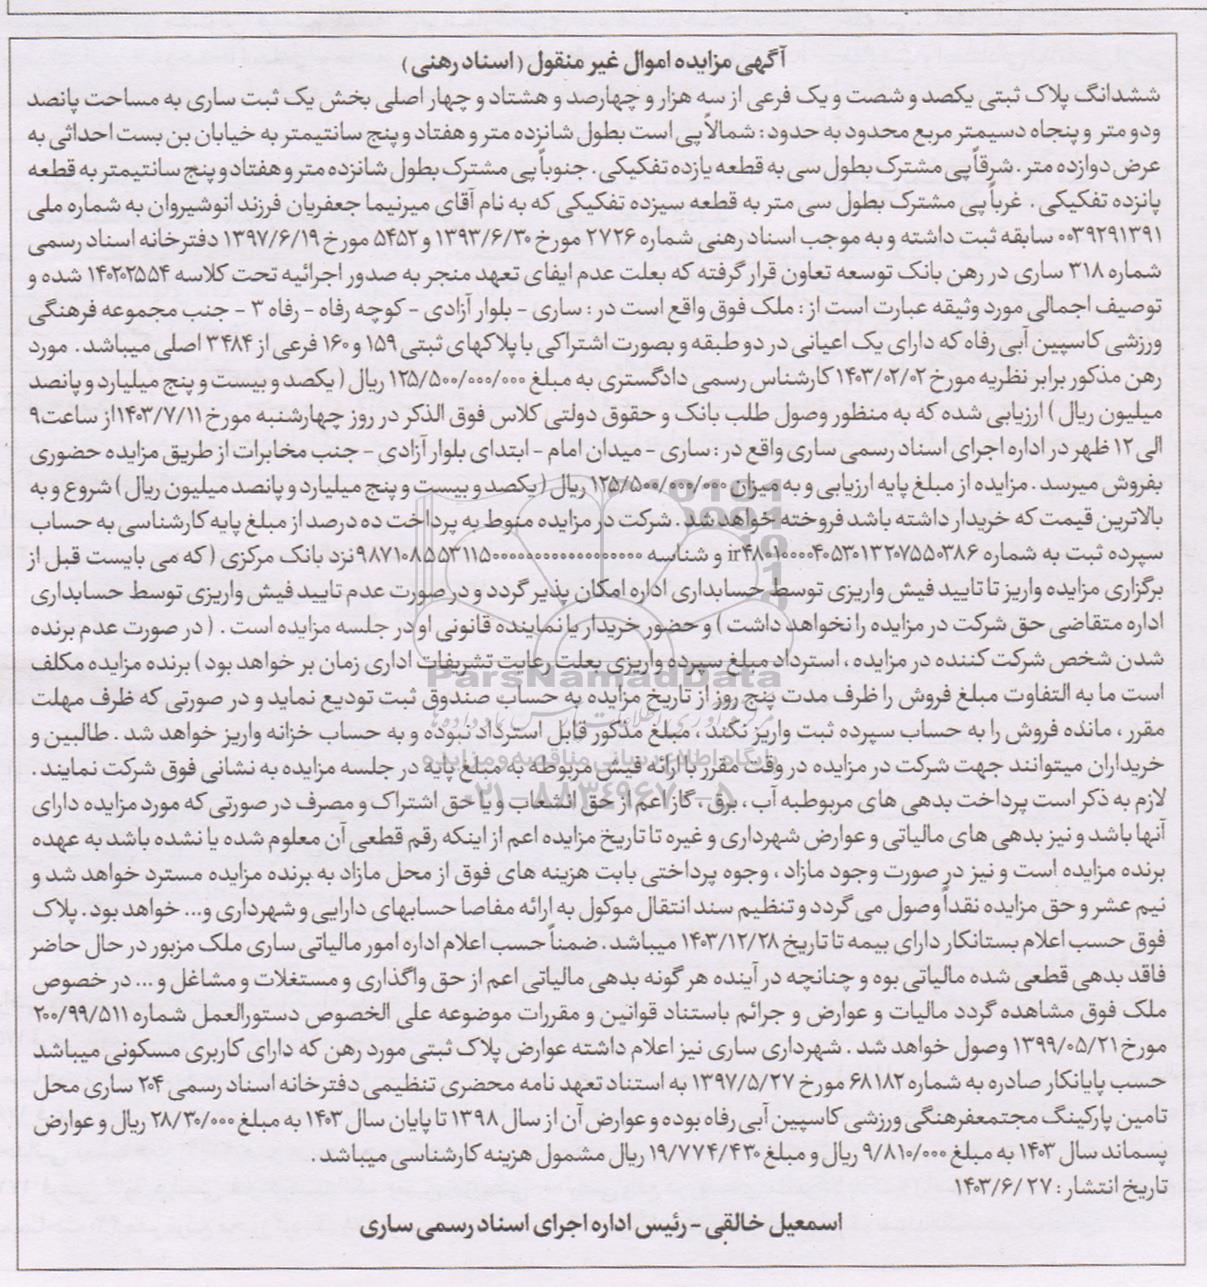 آگهی مزایده اموال غیر منقول (اسناد رهنی)
ششدانگ پلاک ثبتی یکصد و شصت و یک فرعی از سه هزار و چهارصد و هشتاد و چهار اصلی بخش یک ثبت ساری به مساحت پانصد
ودو متر و پنجاه دسیمتر مربع محدود به حدود : شمالاً پی است بطول شانزده متر و هفتاد و پنج سانتیمتر به خیابان بن بست احداثی به
عرض دوازده متر . شرقاً پی مشترک بطول سی به قطعه یازده تفکیکی . جنوباً پی مشترک بطول شانزده متر و هفتاد و پنج سانتیمتر به قطعه
پانزده تفکیکی . غرباً پی مشترک بطول سی متر به قطعه سیزده تفکیکی که به نام آقای میرنیما جعفریان فرزند انوشیروان به شماره ملی
۰۰۳۹۲۹۱۳۹۱ سابقه ثبت داشته و به موجب اسناد رهنی شماره ۲۷۲۶ مورخ ۱۳۹۳/۶/۳۰ و ۵۴۵۲ مورخ ۱۳۹۷/۶/۱۹ دفترخانه اسناد رسمی
شماره ۳۱۸ ساری در رهن بانک توسعه تعاون قرار گرفته که بعلت عدم ایفای تعهد منجر به صدور اجرائیه تحت کلاسه ۱۴۰۲۰۲۵۵۴ شده و
توصیف اجمالی مورد وثیقه عبارت است از : ملک فوق واقع است در : ساری - بلوار آزادی - کوچه رفاه - رفاه ۳ - جنب مجموعه فرهنگی
ورزشی کاسپین آبی رفاه که دارای یک اعیانی در دو طبقه و بصورت اشتراکی با پلاکهای ثبتی ۱۵۹ و ۱۶۰ فرعی از ۳۴۸۴ اصلی میباشد . مورد
رهن مذکور برابر نظریه مورخ ۱۴۰۳/۰۲/۰۲ کارشناس رسمی دادگستری به مبلغ ۱۲۵/۵۰۰/۰۰۰/۰۰۰ ریال ( یکصد و بیست و پنج میلیارد و پانصد
میلیون ریال ) ارزیابی شده که به منظور وصول طلب بانک و حقوق دولتی کلاس فوق الذکر در روز چهارشنبه مورخ ۱۴۰۳/۷/۱۱از ساعت ۹
الی ۱۲ ظهر در اداره اجرای اسناد رسمی ساری واقع در : ساری - میدان امام - ابتدای بلوار آزادی - جنب مخابرات از طریق مزایده حضوری
بفروش میرسد . مزایده از مبلغ پایه ارزیابی و به میزان ۱۲۵/۵۰۰/۰۰۰/۰۰۰ ریال ( یکصد و بیست و پنج میلیارد و پانصد میلیون ریال ) شروع و به
بالاترین قیمت که خریدار داشته باشد فروخته خواهد شد . شرکت در مزایده منوط به پرداخت ده درصد از مبلغ پایه کارشناسی به حساب
سپرده ثبت به شماره ir۴۸۰۱۰۰۰۰۴۰۵۳۰۱۳۲۰۷۵۵۰۳۸۶ و شناسه نزد بانک مرکزی ( که می بایست قبل از
برگزاری مزایده واریز تا تایید فیش واریزی توسط حسابداری اداره امکان پذیر گردد و در صورت عدم تایید فیش واریزی توسط حسابداری
اداره متقاضی حق شرکت در مزایده را نخواهد داشت ) و حضور خریدار یا نماینده قانونی او در جلسه مزایده است . ( در صورت عدم برنده
شدن شخص شرکت کننده در مزایده ، استرداد مبلغ سپرده واریزی بعلت رعایت تشریفات اداری زمان بر خواهد بود ) برنده مزایده مکلف
است ما به التفاوت مبلغ فروش را ظرف مدت پنج روز از تاریخ مزایده به حساب صندوق ثبت تودیع نماید و در صورتی که ظرف مهلت
مقرر ، مانده فروش را به حساب سپرده ثبت واریز نکند ، مبلغ مذکور قابل استرداد نبوده و به حساب خزانه واریز خواهد شد . طالبین و
خریداران میتوانند جهت شرکت در مزایده در وقت مقرر با ارائه فیش مربوطه به مبلغ پایه در جلسه مزایده به نشانی فوق شرکت نمایند .
لازم به ذکر است پرداخت بدهی های مربوطبه آب ، برق ، گاز اعم از حق انشعاب و یا حق اشتراک و مصرف در صورتی که مورد مزایده دارای
آنها باشد و نیز بدهی های مالیاتی و عوارض شهرداری و غیره تا تاریخ مزایده اعم از اینکه رقم قطعی آن معلوم شده یا نشده باشد به عهده
برنده مزایده است و نیز در صورت وجود مازاد ، وجوه پرداختی بابت هزینه های فوق از محل مازاد به برنده مزایده مسترد خواهد شد و
نیم عشر و حق مزایده نقداً وصول می گردد و تنظیم سند انتقال موکول به ارائه مفاصا حسابهای دارایی و شهرداری و... خواهد بود . پلاک
فوق حسب اعلام بستانکار دارای بیمه تا تاریخ ۱۴۰۳/۱۲/۲۸ میباشد . ضمناً حسب اعلام اداره امور مالیاتی ساری ملک مزبور در حال حاضر
فاقد بدهی قطعی شده مالیاتی بوه و چنانچه در آینده هر گونه بدهی مالیاتی اعم از حق واگذاری و مستغلات و مشاغل و ... در خصوص
ملک فوق مشاهده گردد مالیات و عوارض و جرائم باستناد قوانین و مقررات موضوعه علی الخصوص دستورالعمل شماره ۲۰۰/۹۹/۵۱۱
مورخ ۱۳۹۹/۰۵/۲۱ وصول خواهد شد . شهرداری ساری نیز اعلام داشته عوارض پلاک ثبتی مورد رهن که دارای کاربری مسکونی میباشد
حسب پایانکار صادره به شماره ۶۸۱۸۲ مورخ ۱۳۹۷/۵/۲۷ به استناد تعهد نامه محضری تنظیمی دفترخانه اسناد رسمی ۲۰۴ ساری محل
تامین پارکینگ مجتمعفرهنگی ورزشی کاسپین آبی رفاه بوده و عوارض آن از سال ۱۳۹۸ تا پایان سال ۱۴۰۳ به مبلغ ۲۸/۳۰/۰۰۰ ریال و عوارض
پسماند سال ۱۴۰۳ به مبلغ ۹/۸۱۰/۰۰۰ ریال و مبلغ ۱۹/۷۷۴/۴۳۰ ریال مشمول هزینه کارشناسی میباشد .
تاریخ انتشار : ۲۷ /۱۴۰۳/۶
اسمعیل خالقی - رئیس اداره اجرای اسناد رسمی ساری
ParsNamadData
پایگاه اطلاع رسانی مناقصه و مزایده
۰۲۱-۸۸۳۴۹۶۷۰-۵